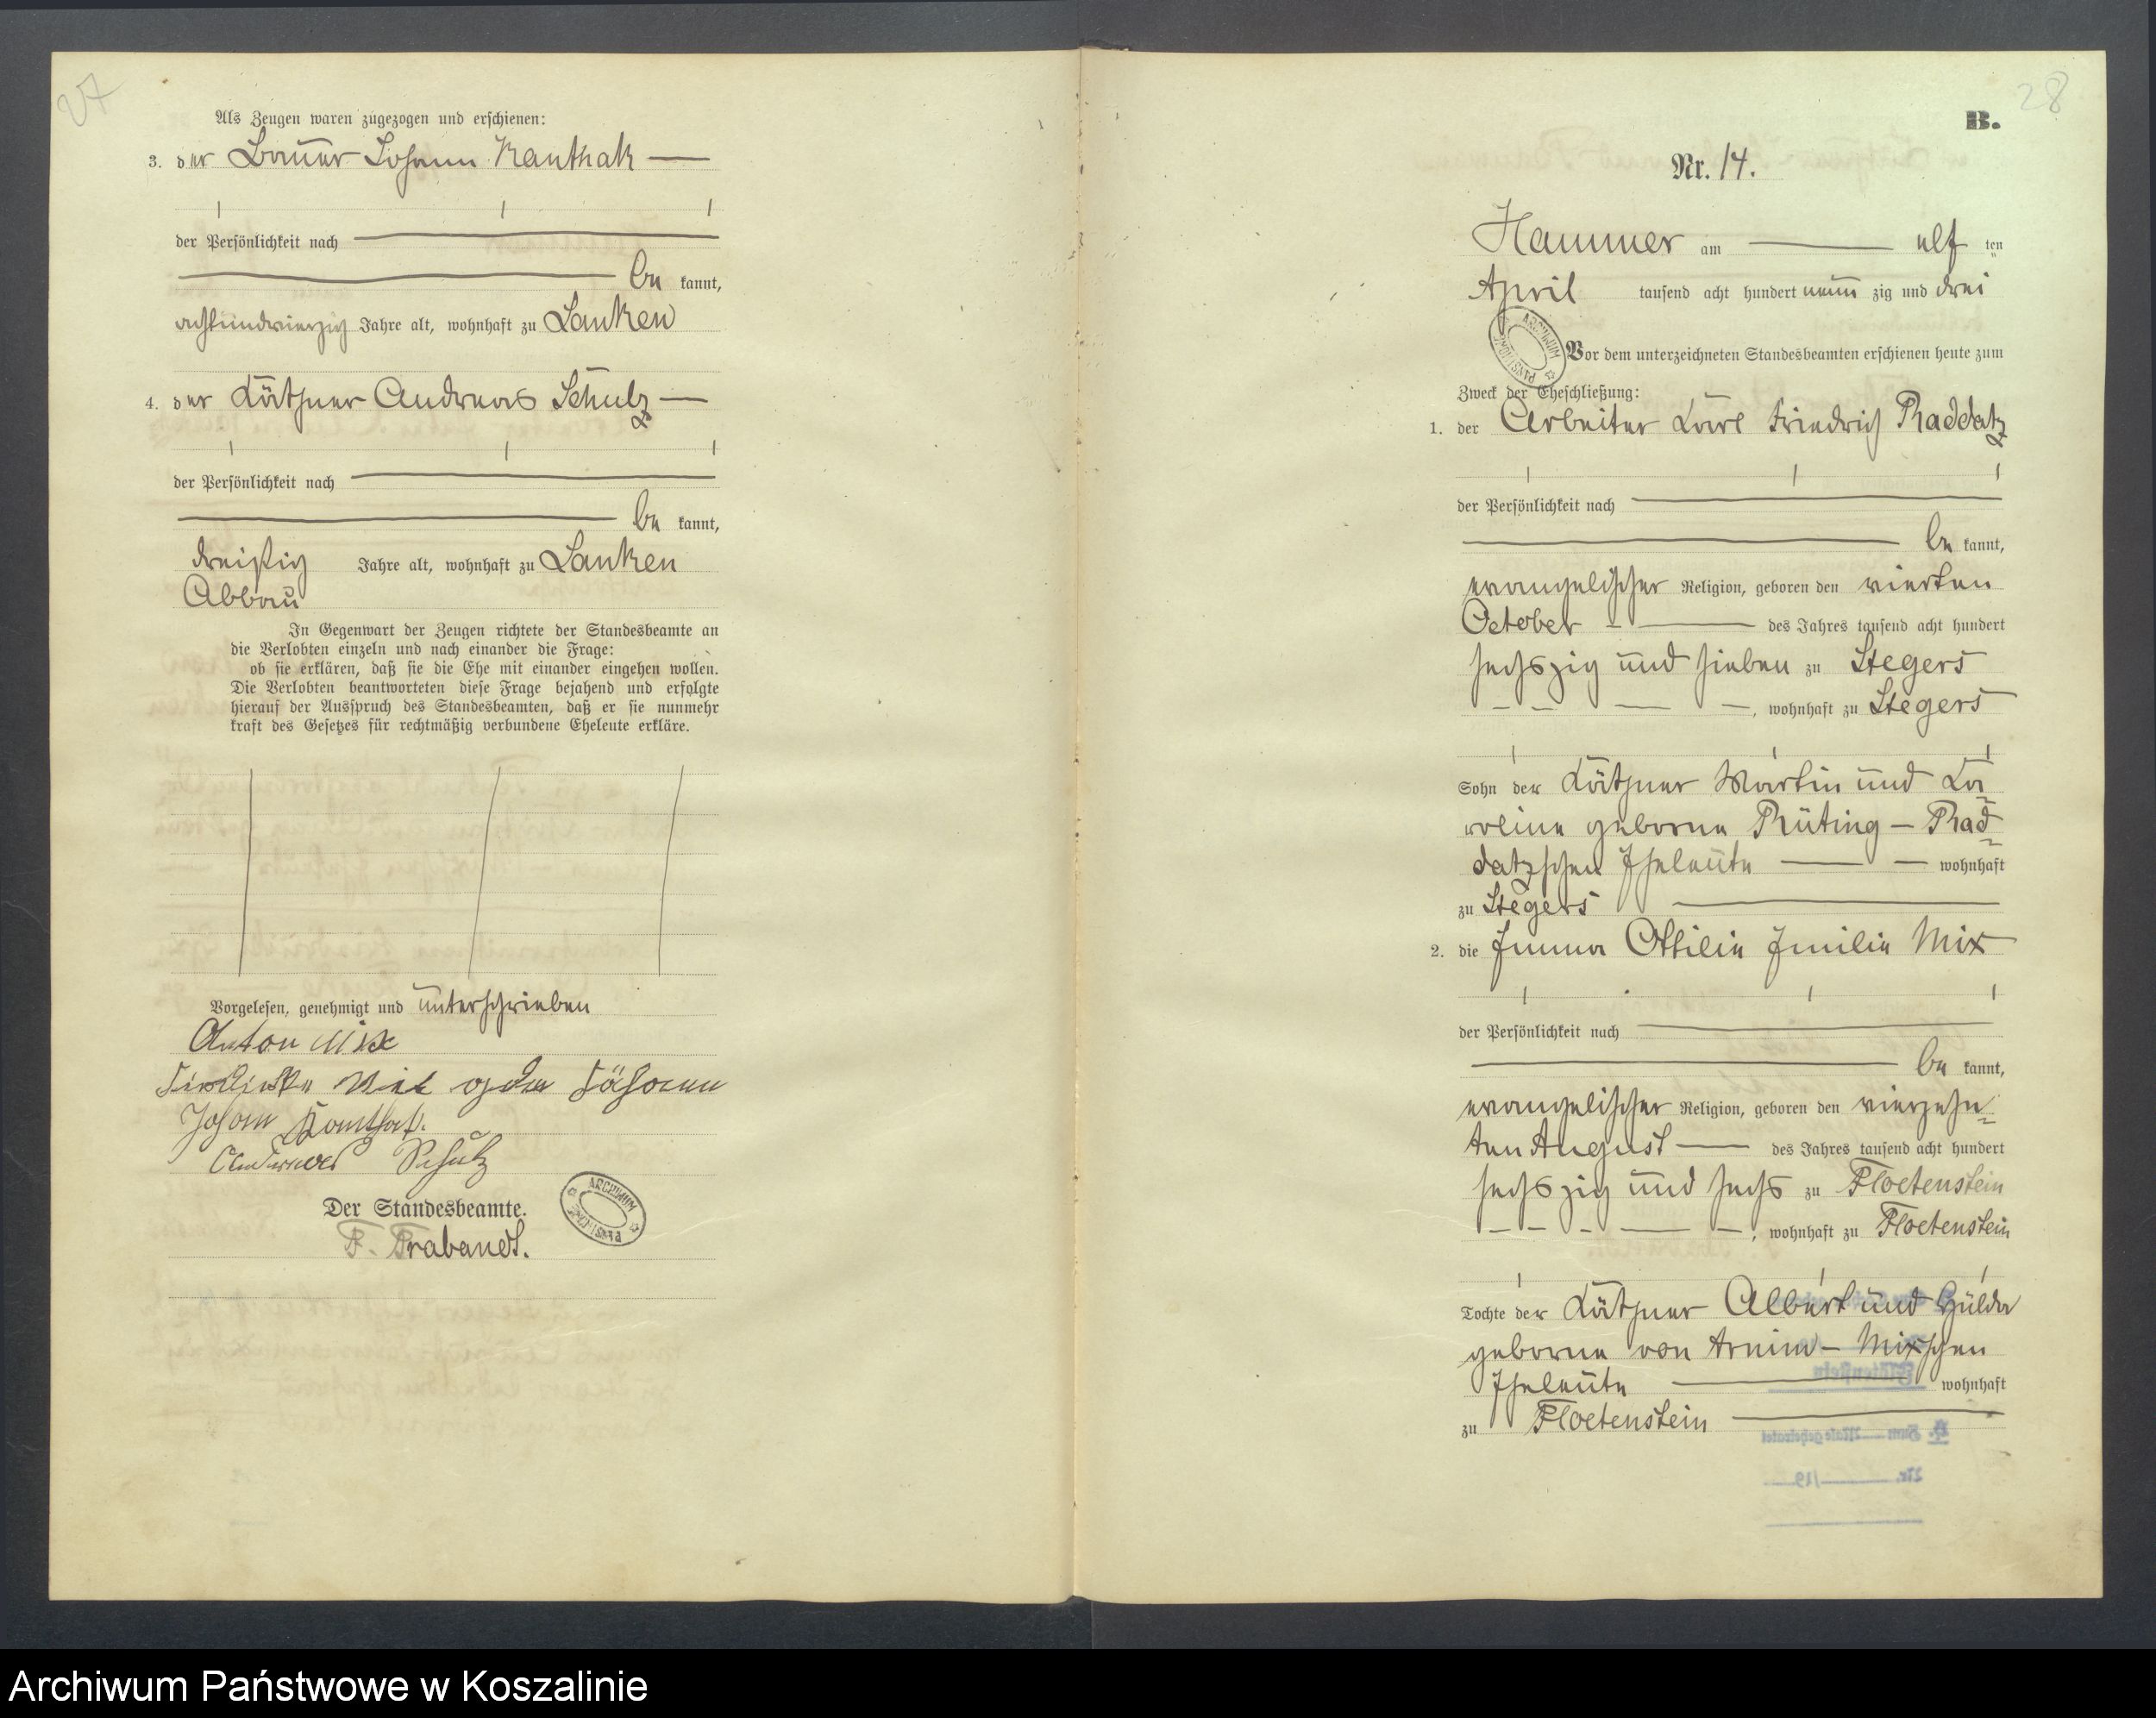 27
Als Zeugen waren zugezogen und erschienen:
3. der Bauer Johann Kanthak —
der Persönlichkeit nach
be kannt,
achtundvierzig Jahre alt, wohnhaft zu Lanken
4. der Käthner Andreas Schulz —
der Persönlichkeit nach
be kannt,
dreißig Jahre alt, wohnhaft zu Lanken
Abbau
In Gegenwart der Zeugen richtete der Standesbeamte an
die Verlobten einzeln und nach einander die Frage:
ob sie erklären, daß sie die Ehe mit einander eingehen wollen.
Die Verlobten beantworteten diese Frage bejahend und erfolgte
hierauf der Ausspruch des Standesbeamten, daß er sie nunmehr
kraft des Gesetzes für rechtmäßig verbundene Eheleute erkläre.
Vorgelesen, genehmigt und unterschrieben
Anton Mix
Johann Kanthak.
Andreas Schulz
Der Standesbeamte.
F. Brabandt.
ARCHIWUM PAŃSTWOWE
28
B.
Nr. 14.
Hammer am — elf ten
April tausend acht hundert neun zig und drei
ARCHIWUM PAŃSTWOWE
Vor dem unterzeichneten Standesbeamten erschienen heute zum
Zweck der Eheschließung:
1. der Arbeiter Karl Friedrich Raddatz
der Persönlichkeit nach
be kannt,
evangelischer Religion, geboren den vierten
October — des Jahres tausend acht hundert
sechszig und sieben zu Stegers
, wohnhaft zu Stegers
Sohn der Käthner Martin und Ka-
roline geborne Rüting - Rad-
datzschen Eheleute — wohnhaft
zu Stegers
2. die Emma Ottilie Emilie Mix
der Persönlichkeit nach
be kannt,
evangelischer Religion, geboren den vierzehn-
ten August — des Jahres tausend acht hundert
sechszig und sechs zu Floetenstein
, wohnhaft zu Floetenstein
Tochte der Käthner Albert und Hulda
geborne von Arnim - Mixschen
Eheleute — wohnhaft
zu Floetenstein
Archiwum Państwowe w Koszalinie